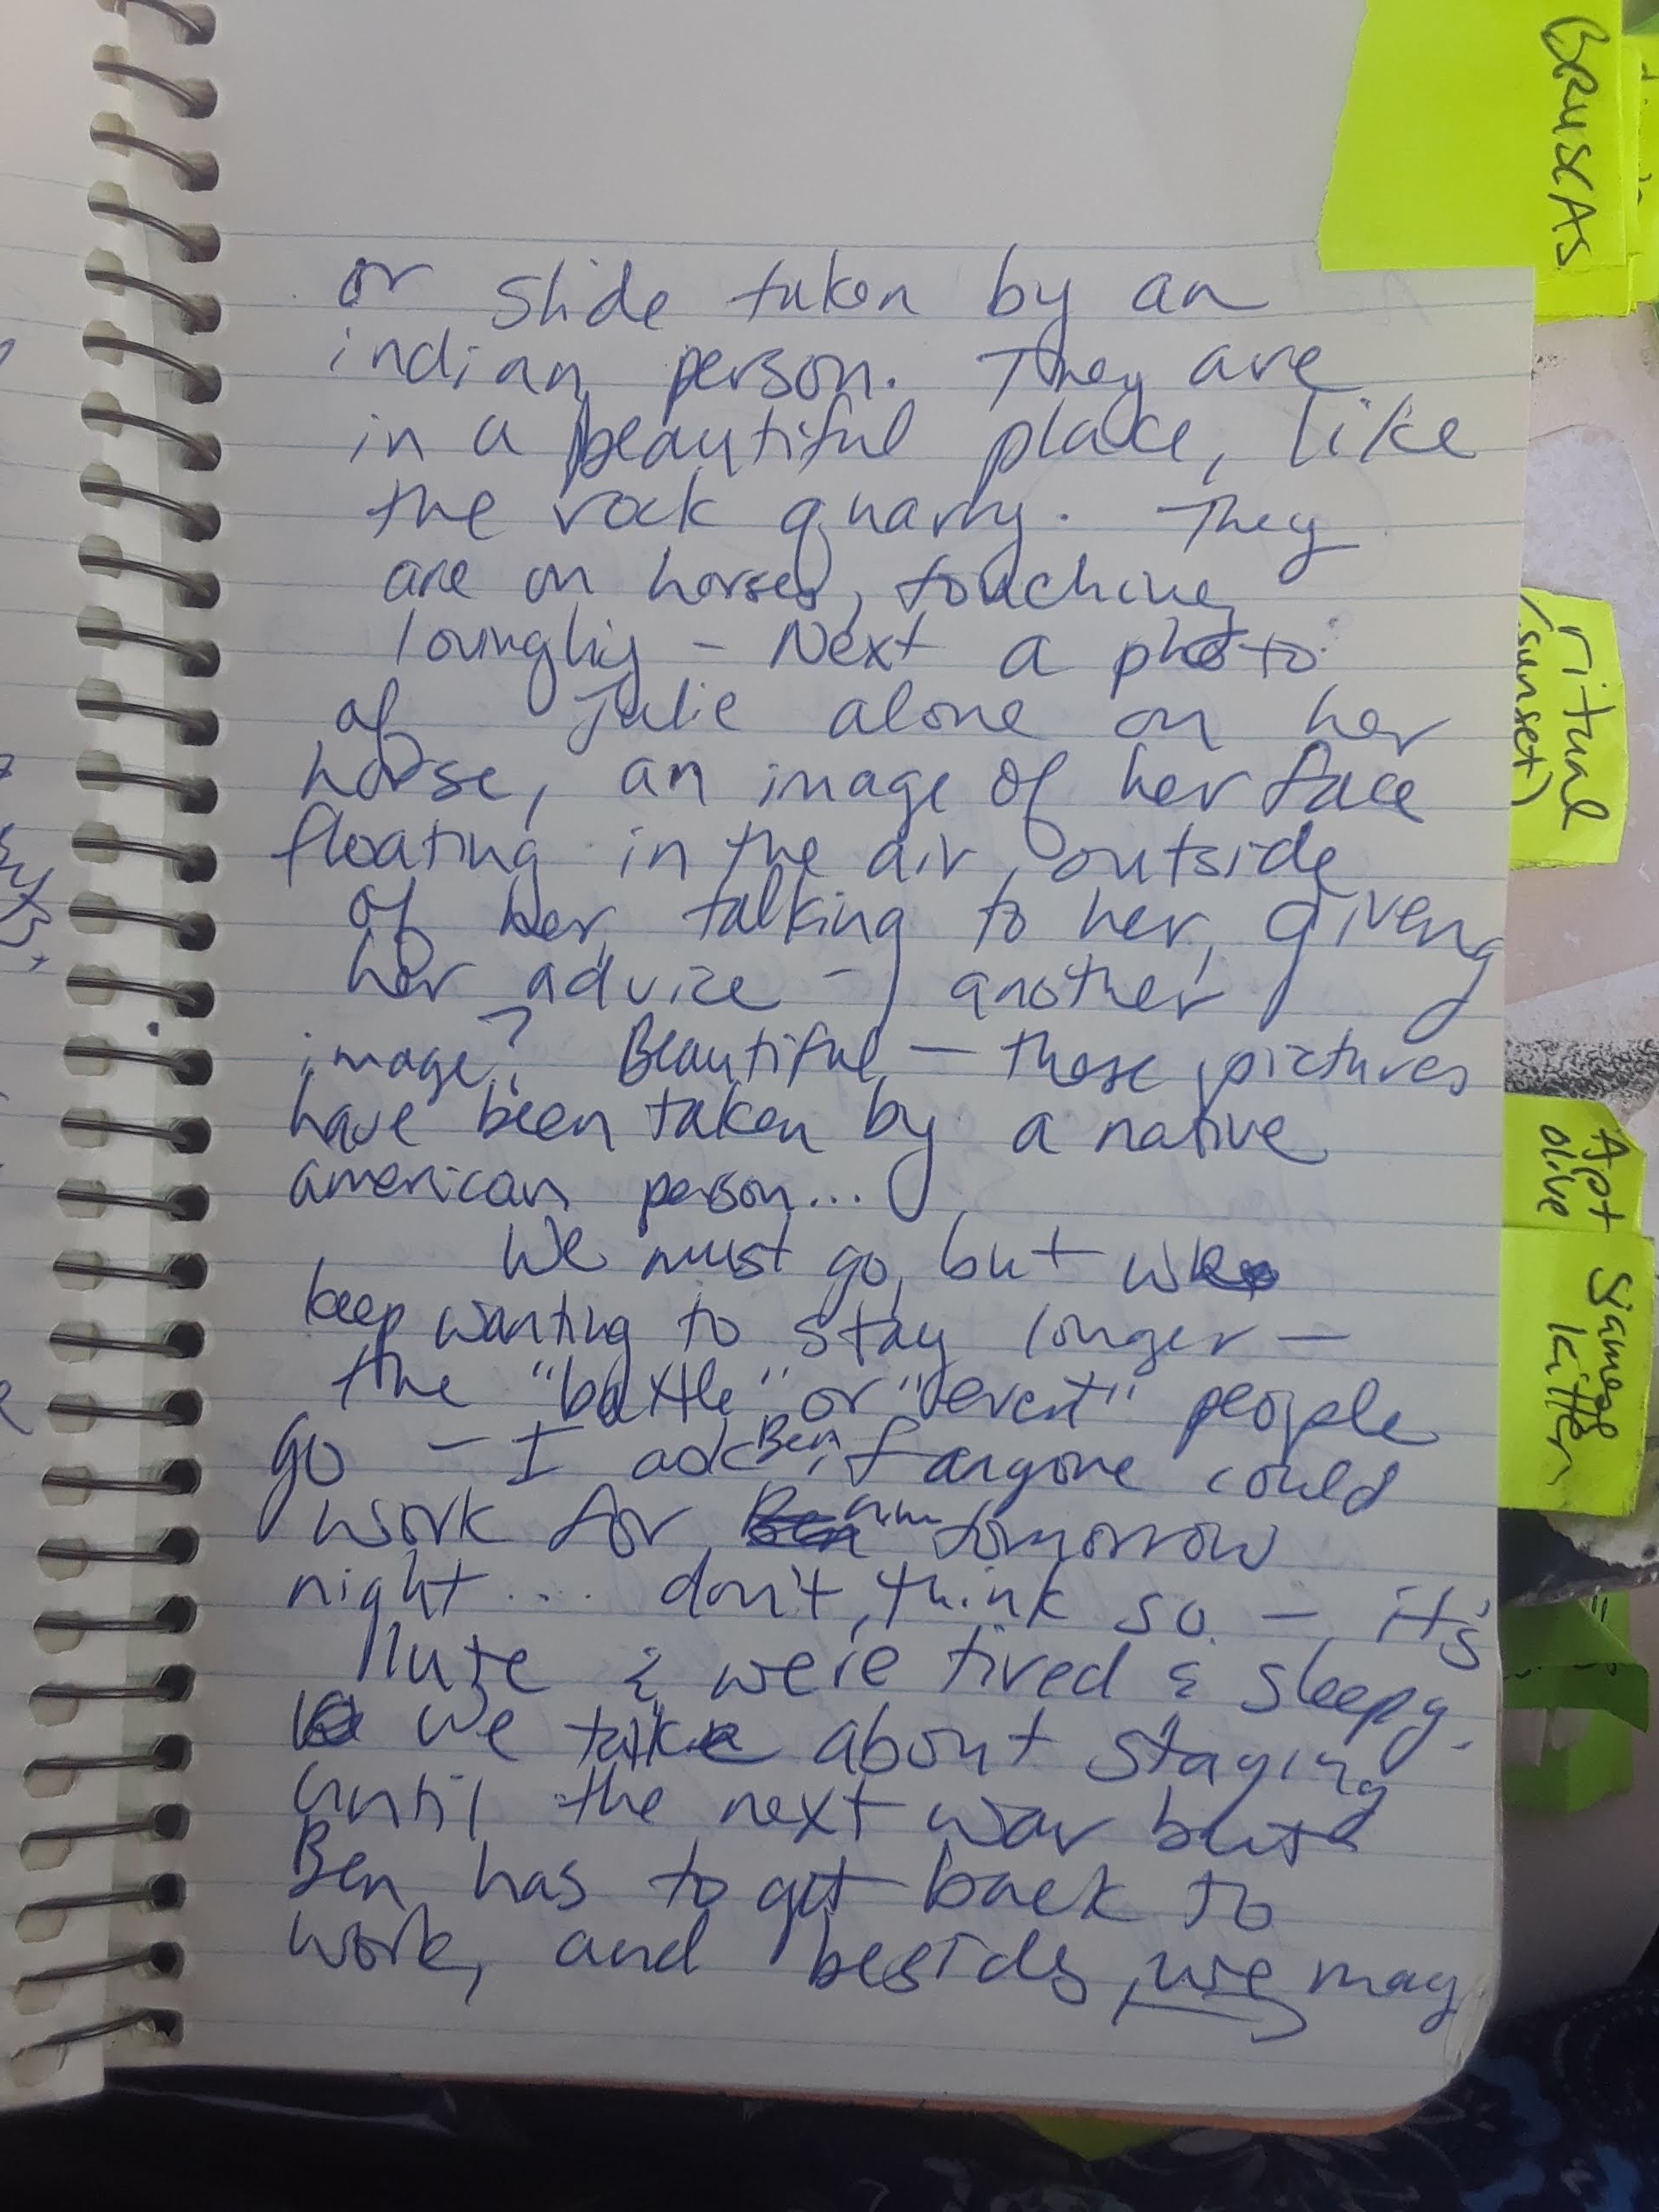 or slide taken by an
indian person. They are
in a beautiful place, like
the rock quarry. They
are on horses, touching
lovingly - Next a photo
of Julie alone on her
horse, an image of her face
floating in the air outside
of her, talking to her, giving
her advice - another
image? Beautiful - these pictures
have been taken by a native
american person...
We must go, but we
keep wanting to stay longer -
the "battle" or "event" people
go - I ask Ben if anyone could
work for him tomorrow
night... don't think so - it's
late & we're tired & sleepy.
We talk about staying
until the next war but
Ben has to get back to
work, and besides, we may
BRUSCAS
ritual
(sunset)
Apt
olive
Siamese
kitten